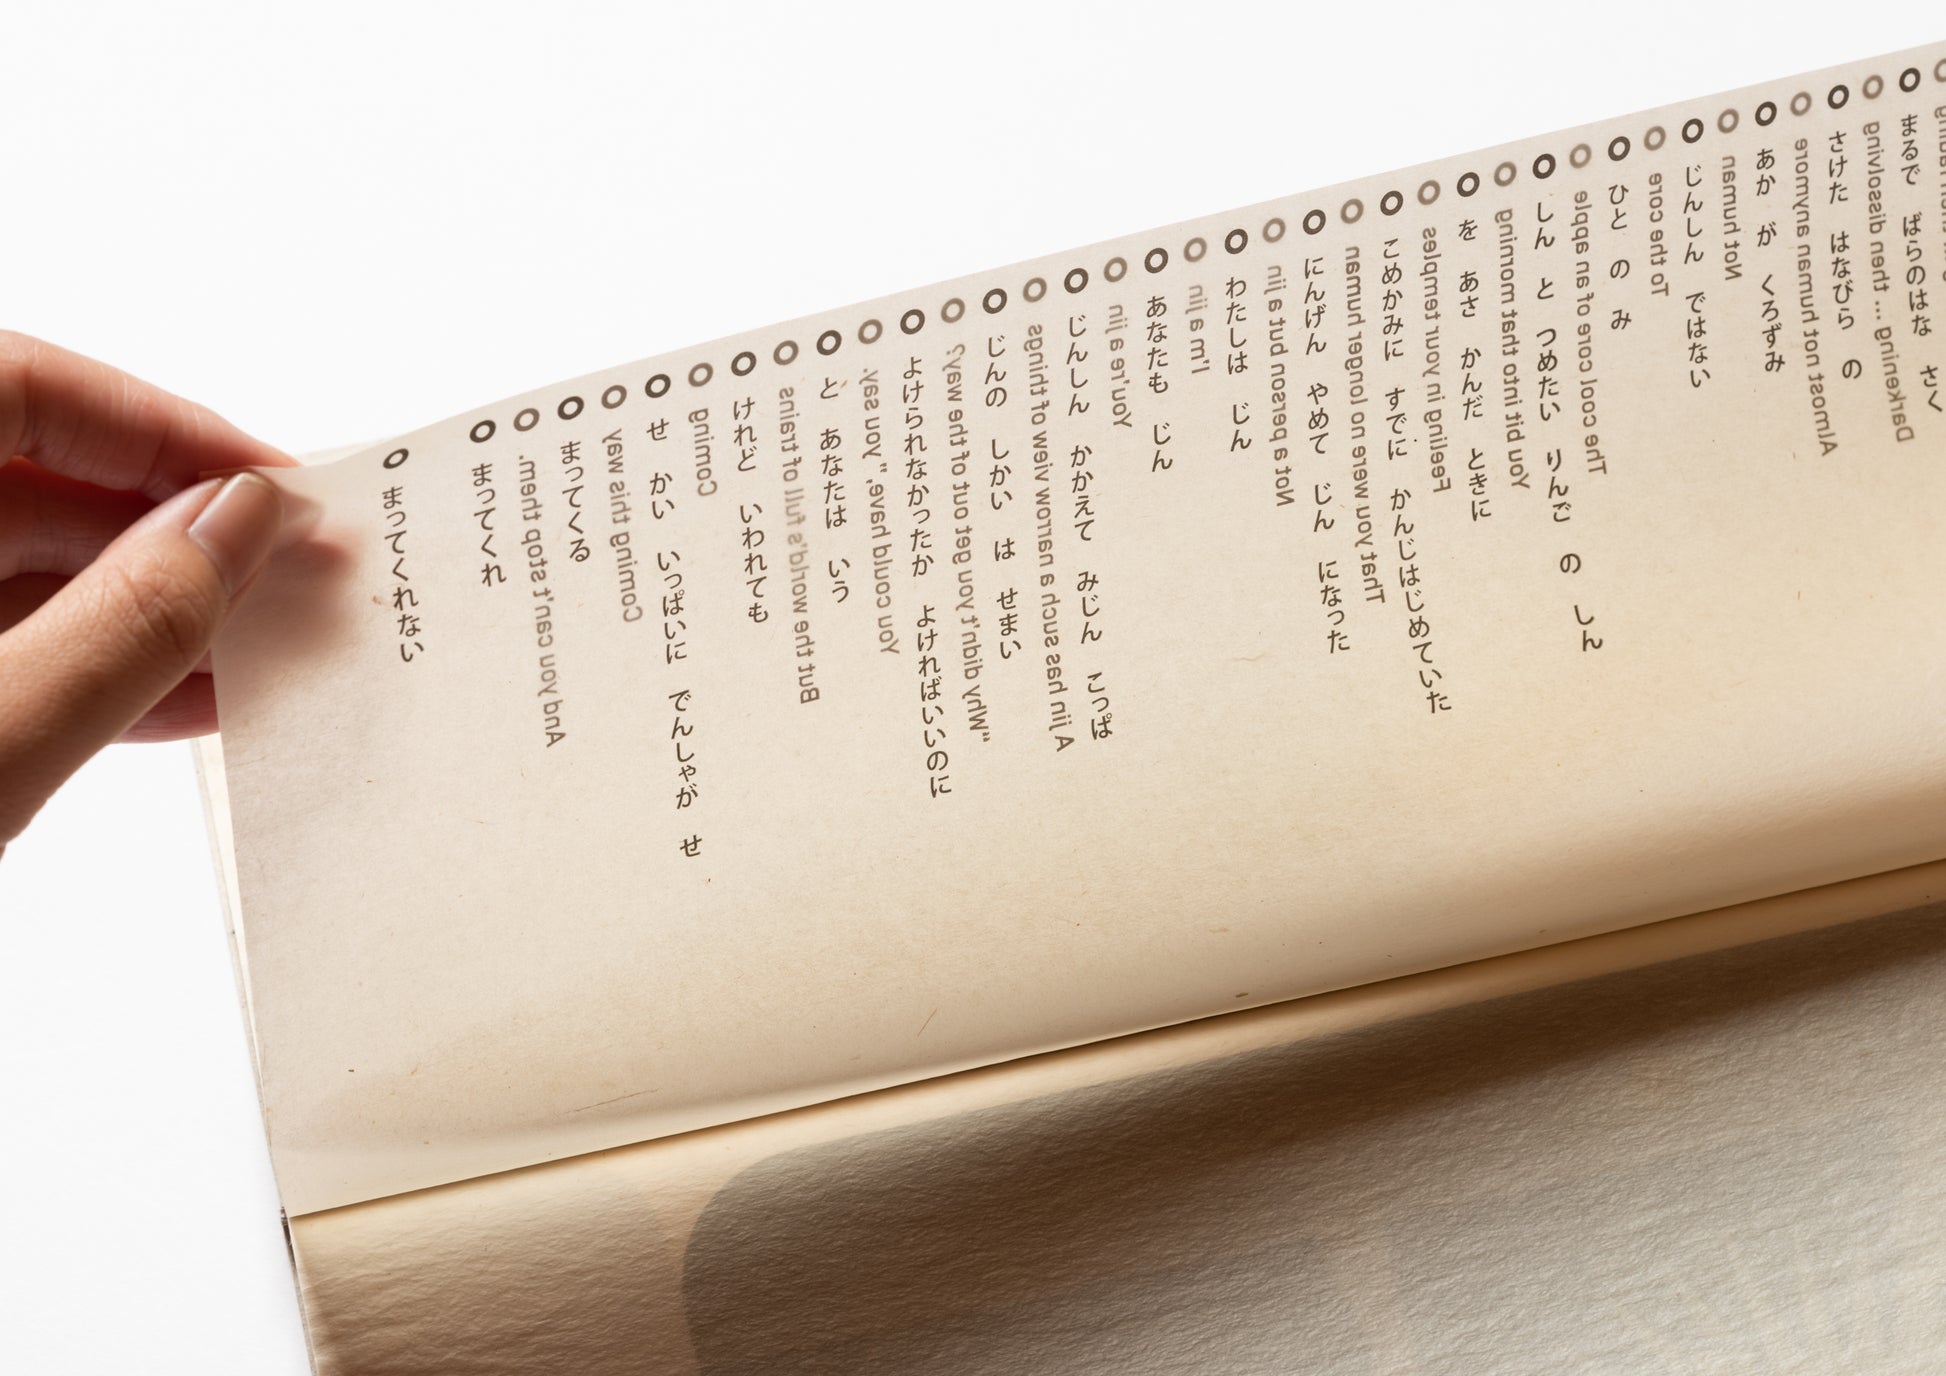 まるで ばらのはな さく
Darkening ... then dissolving
さけた はなびら の
Almost not human anymore
あか が くろずみ
Not human
じんしん ではない
To the core
ひと の み
The cool core of an apple
しん と つめたい りんご の しん
You bit into that morning
を あさ かんだ ときに
Feeling in your temples
こめかみに すでに かんじはじめていた
That you were no longer human
にんげん やめて じん になった
Not a person but a jin
わたしは じん
I'm a jin
あなたも じん
You're a jin
じんしん かかえて みじん こっぱ
A jin has such a narrow view of things
じんの しかい は せまい
"Why didn't you get out of the way?
よけられなかったか よければいいのに
You could have," you say.
と あなたは いう
But the world's full of trains
けれど いわれても
Coming
せ かい いっぱいに でんしゃが せ
Coming this way
まってくる
And you can't stop them.
まってくれ
まってくれない